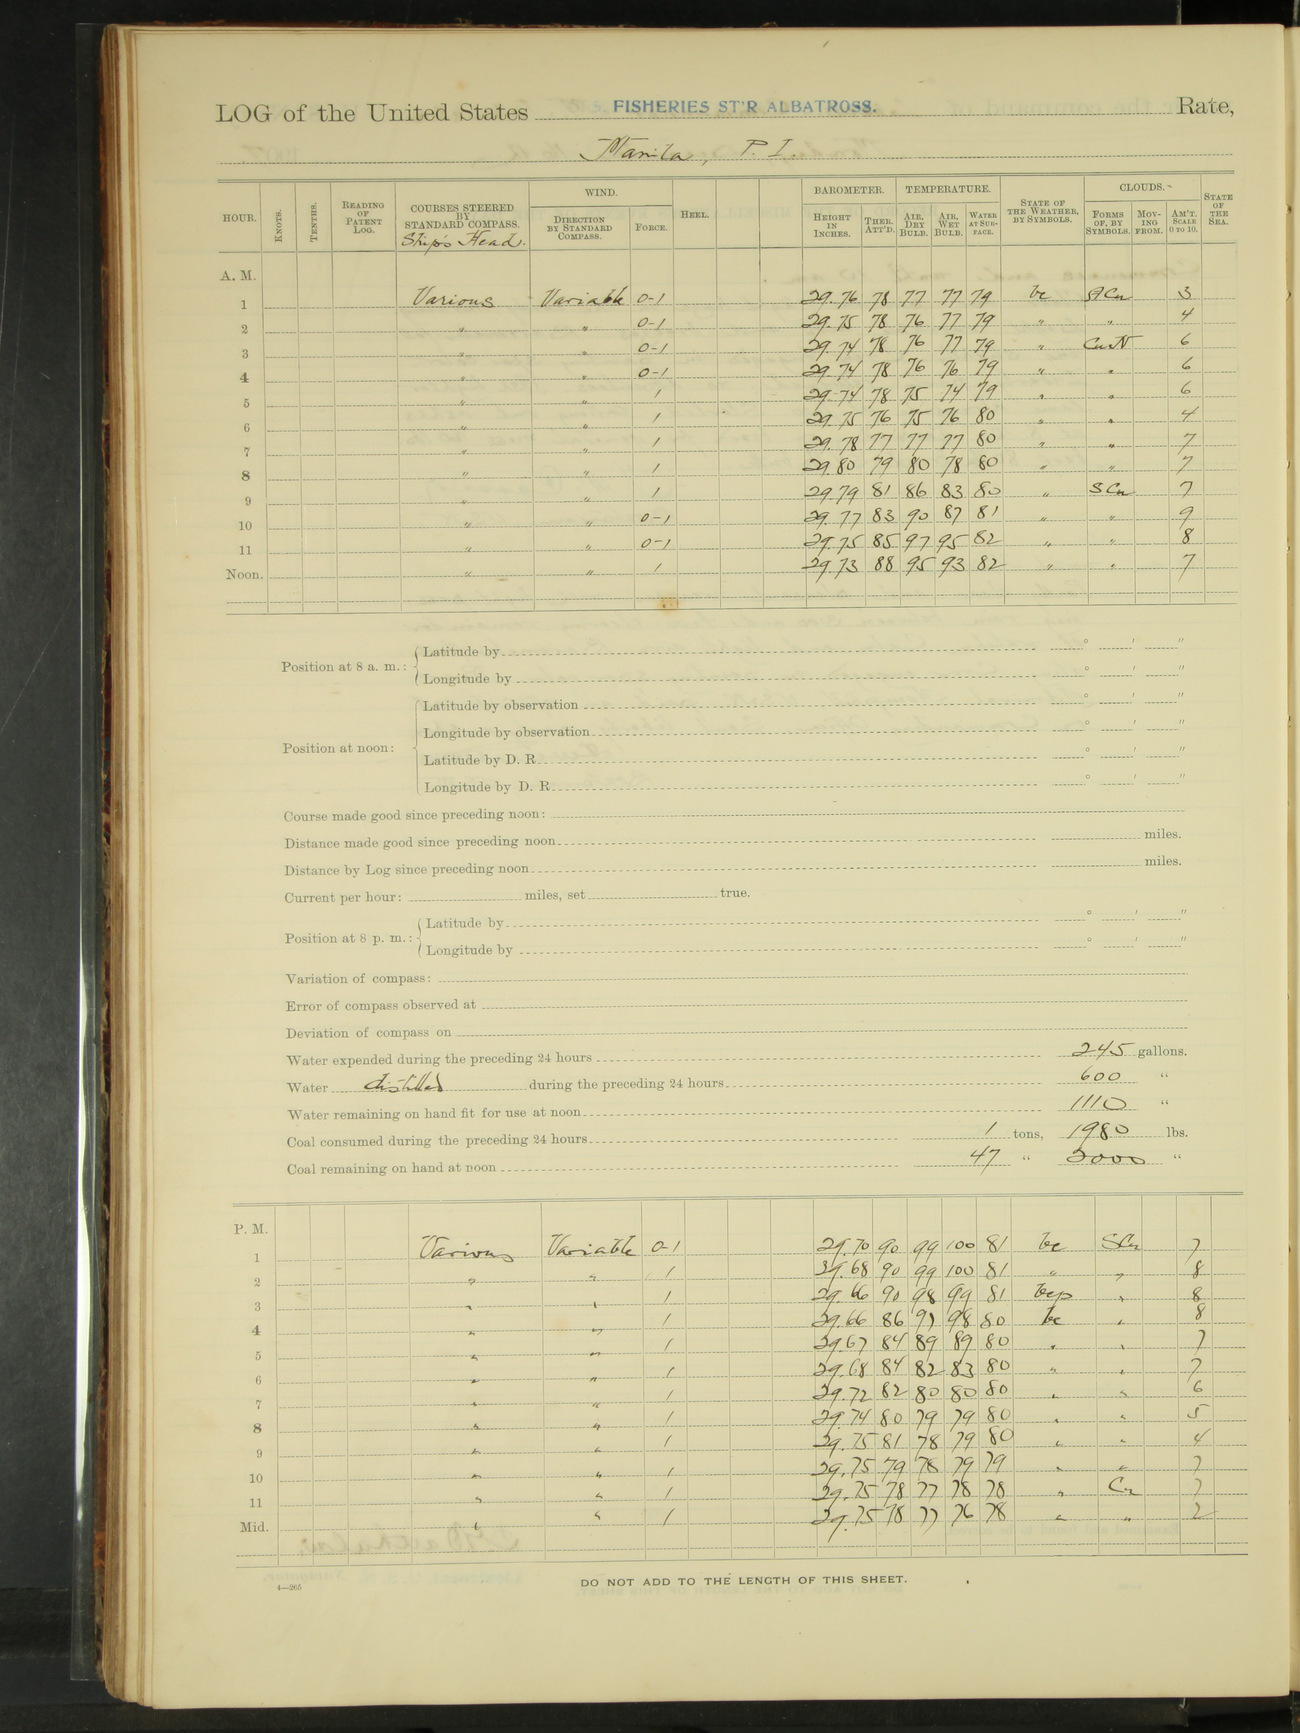 LOG of the United States FISHERIES ST'R ALBATROSS. Rate,
Manila, P. I.
HOUR. KNOTS. TENTHS. READING OF PATENT LOG. COURSES STEERED BY STANDARD COMPASS. Ship's Head. WIND. DIRECTION BY STANDARD COMPASS. FORCE. HEEL. BAROMETER. HEIGHT IN INCHES. THER. ATT'D. TEMPERATURE. AIR, DRY BULB. AIR, WET BULB. WATER AT SURFACE. STATE OF THE WEATHER, BY SYMBOLS. CLOUDS. FORMS OF, BY SYMBOLS. MOVING FROM. AM'T. SCALE 0 TO 10. STATE OF THE SEA.
A. M.
1 Various Variable 0-1 29.76 78 77 77 79 bc SCu 3
2 " " 0-1 29.75 78 76 77 79 " " 4
3 " " 0-1 29.74 78 76 77 79 " CuN 6
4 " " 0-1 29.74 78 76 76 79 " " 6
5 " " 1 29.74 78 75 74 79 " " 6
6 " " 1 29.75 76 75 76 80 " " 4
7 " " 1 29.78 77 77 77 80 " " 7
8 " " 1 29.80 79 80 78 80 " " 7
9 " " 1 29.79 81 86 83 80 " SCu 7
10 " " 0-1 29.77 83 90 87 81 " " 9
11 " " 0-1 29.75 85 97 95 82 " " 8
Noon. " " 1 29.73 88 95 93 82 " " 7
Position at 8 a. m.: Latitude by ° ' "
Longitude by ° ' "
Position at noon: Latitude by observation ° ' "
Longitude by observation ° ' "
Latitude by D. R. ° ' "
Longitude by D. R. ° ' "
Course made good since preceding noon:
Distance made good since preceding noon miles.
Distance by Log since preceding noon miles.
Current per hour: miles, set true.
Position at 8 p. m.: Latitude by ° ' "
Longitude by ° ' "
Variation of compass:
Error of compass observed at
Deviation of compass on
Water expended during the preceding 24 hours 245 gallons.
Water distilled during the preceding 24 hours 600 "
Water remaining on hand fit for use at noon 1110 "
Coal consumed during the preceding 24 hours 1 tons, 1980 lbs.
Coal remaining on hand at noon 47 " 2000 "
P. M.
1 Various Variable 0-1 29.70 90 99 100 81 bc SCu 7
2 " " 1 29.68 90 99 100 81 " " 8
3 " " 1 29.66 90 98 99 81 bcp " 8
4 " " 1 29.66 86 97 98 80 bc " 8
5 " " 1 29.67 84 89 89 80 " " 7
6 " " 1 29.68 84 82 83 80 " " 7
7 " " 1 29.72 82 80 80 80 " " 6
8 " " 1 29.74 80 79 79 80 " " 5
9 " " 1 29.75 81 78 79 80 " " 4
10 " " 1 29.75 79 78 79 79 " " 7
11 " " 1 29.75 78 77 78 78 " Cu 7
Mid. " " 1 29.75 78 77 76 78 " " 2
4—265
DO NOT ADD TO THE LENGTH OF THIS SHEET.